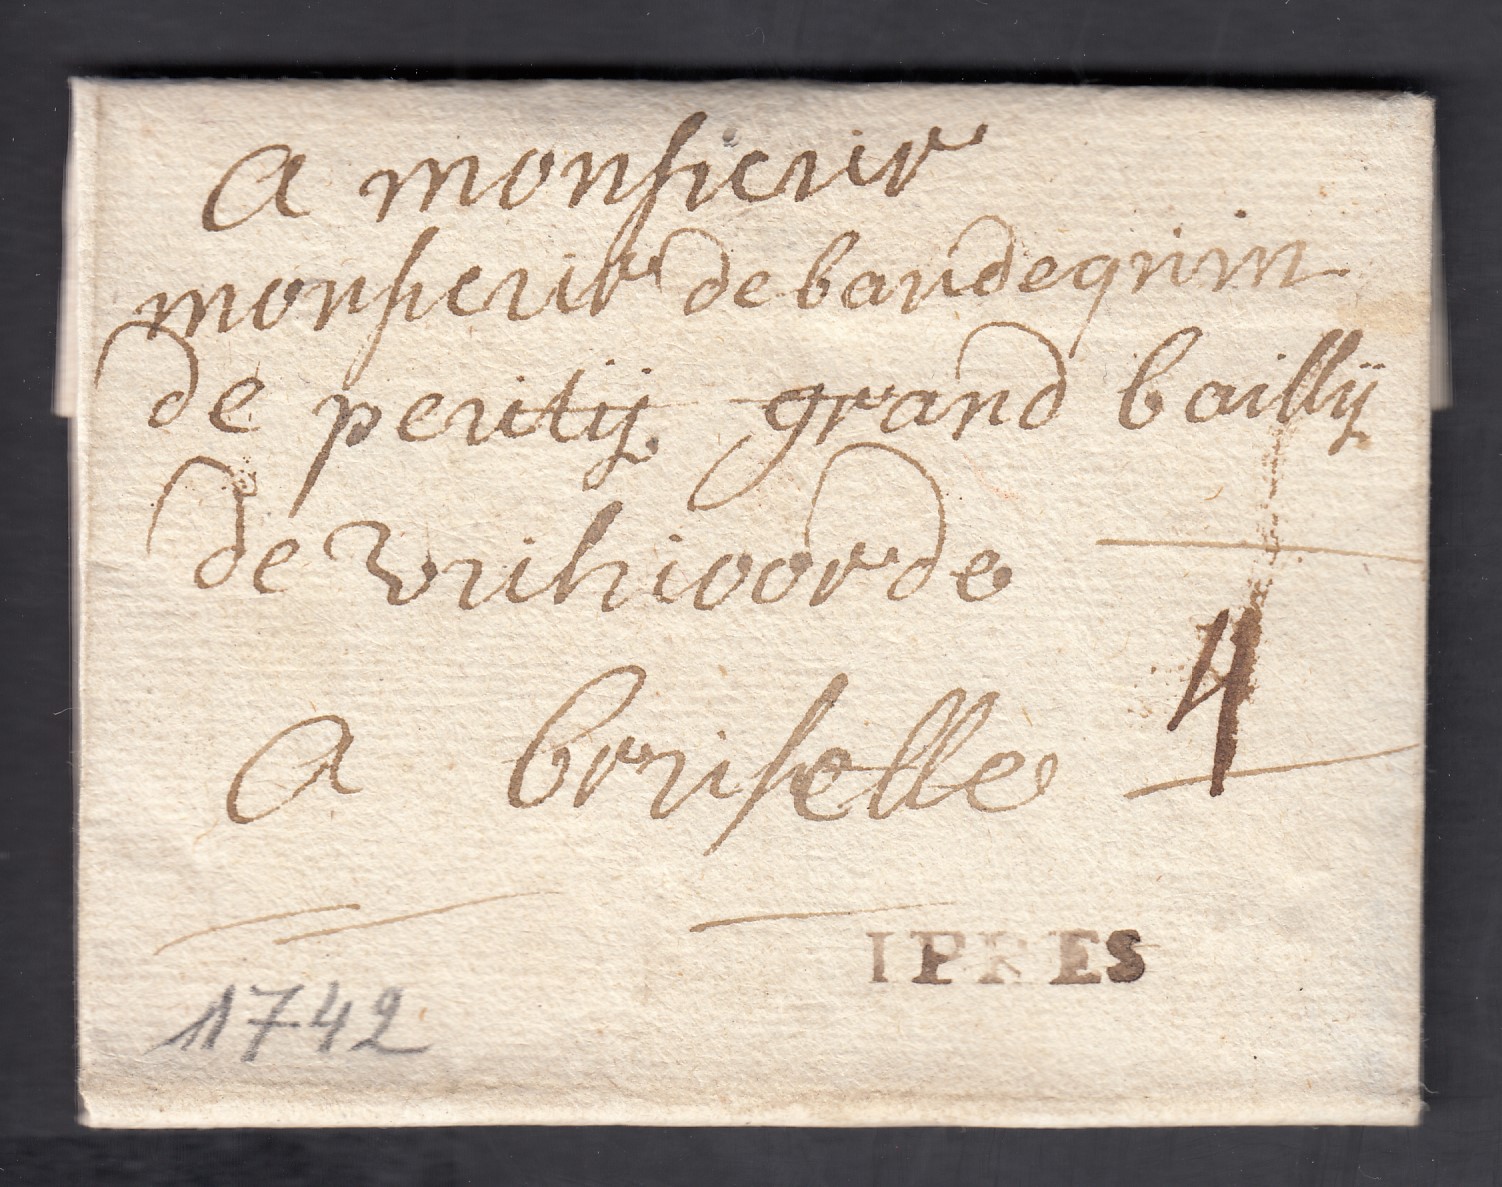 A monsieur
monsieur de baudequin
de peutij grand baillij
de vilvoorde
4
a bruselle
IPRES
1742